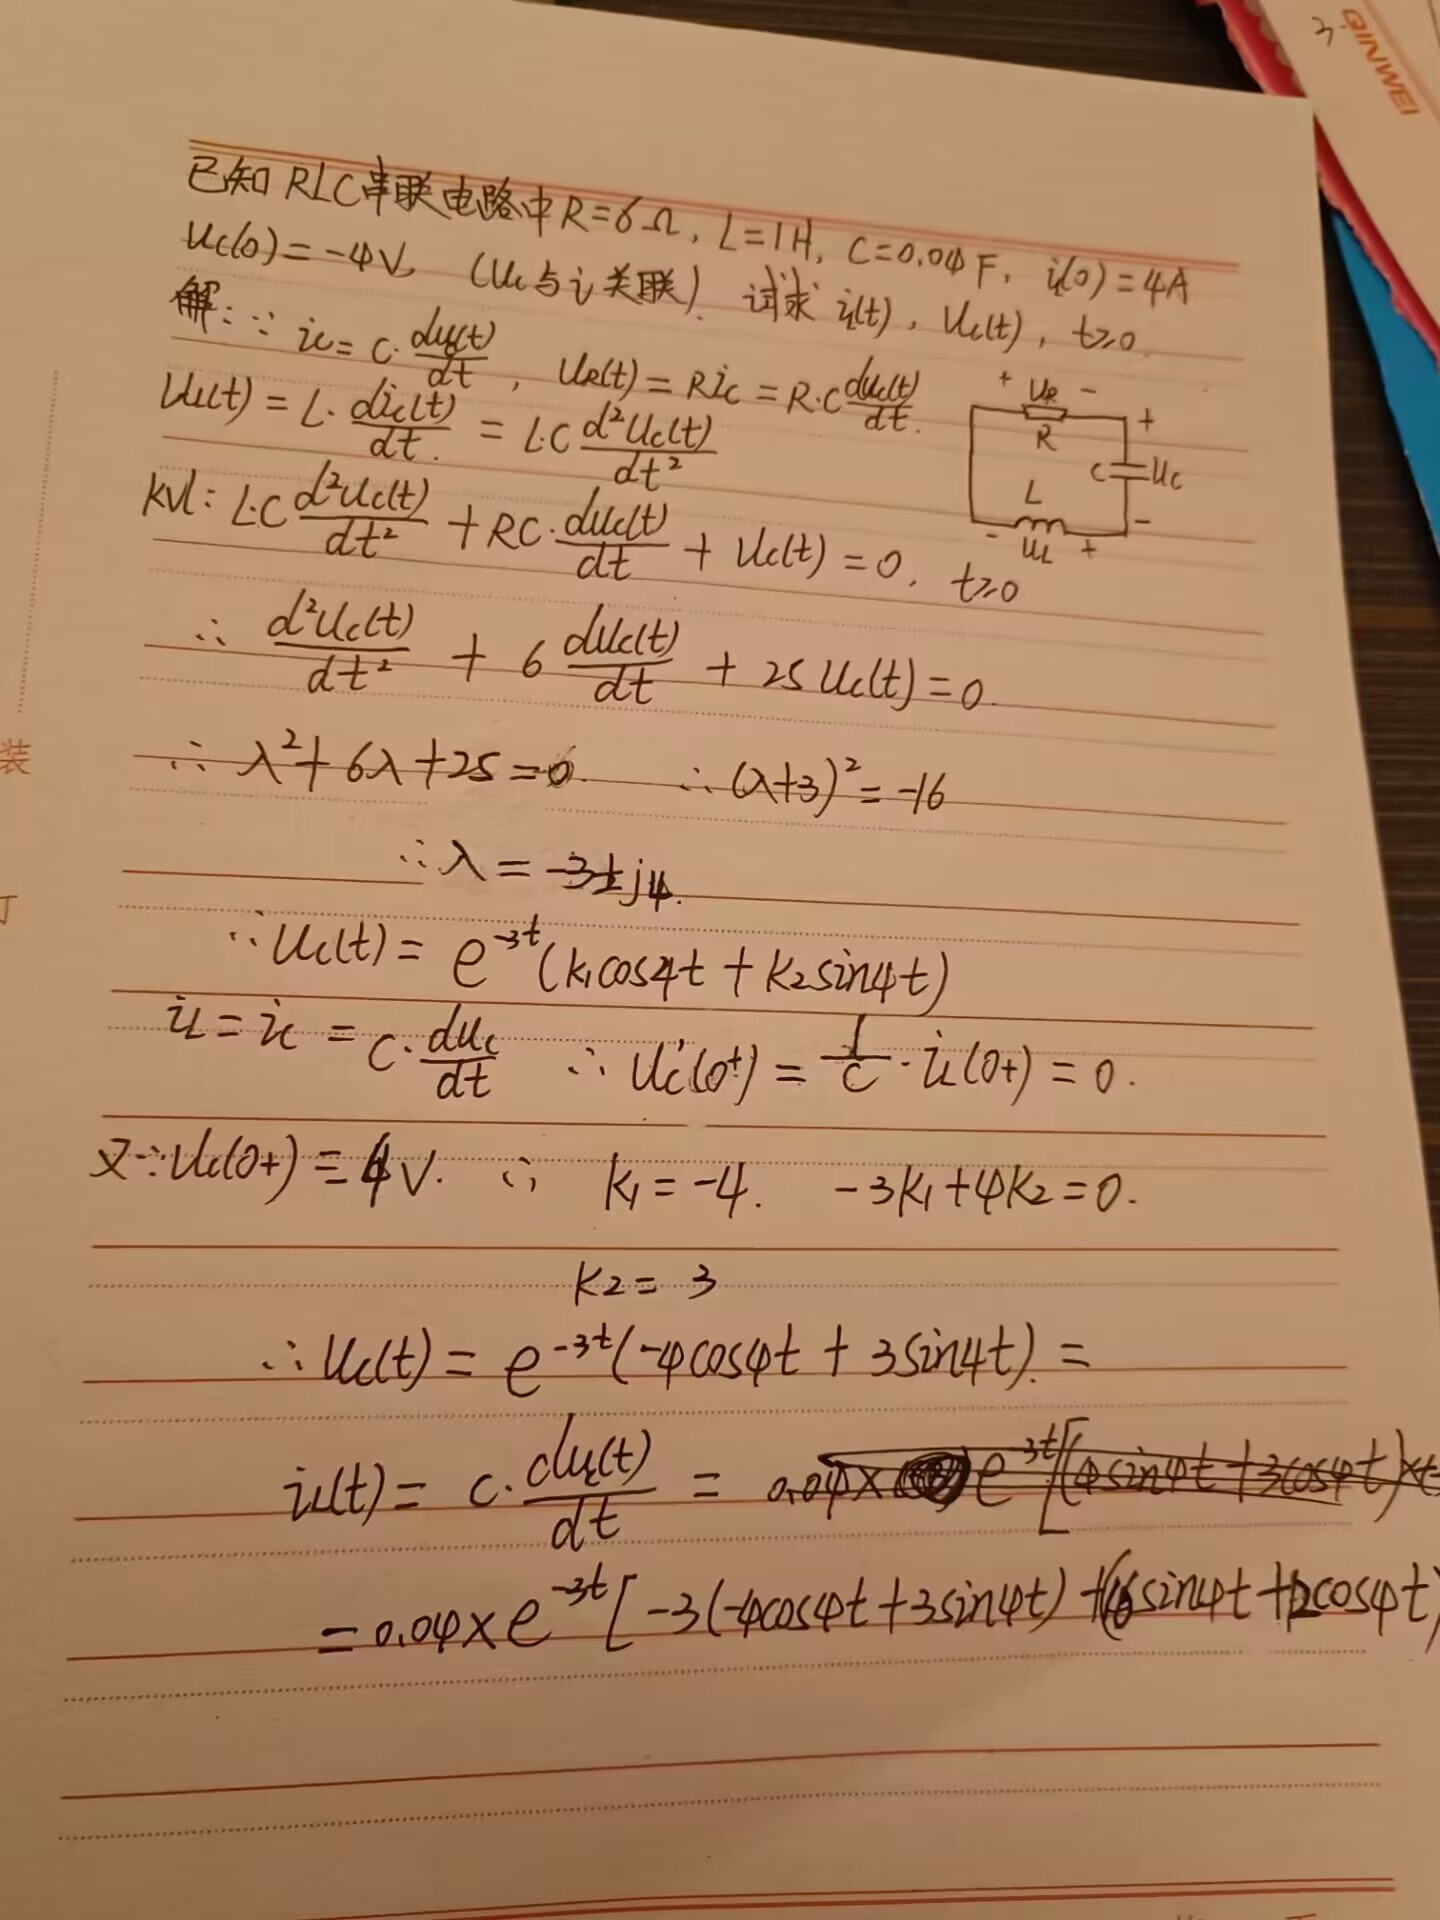 3.
QINWEI
已知RLC串联电路中R=6Ω, L=1H, C=0.04F, i(0)=4A
Uc(0)=-4V, (Uc与i关联). 试求 iL(t), Uc(t), t≥0.
解: ∵ ic = C·duc(t)/dt, UR(t)=Ric=R·C duc(t)/dt.
UL(t) = L·dic(t)/dt = L·C d²Uc(t)/dt²
+ UR -
R
+
C
Uc
-
L
- UL +
KVL: L·C d²Uc(t)/dt² + RC·duc(t)/dt + Uc(t) = 0. t≥0
∴ d²Uc(t)/dt² + 6 duc(t)/dt + 25Uc(t) = 0.
∴ λ²+6λ+25=0. ∴ (λ+3)²=-16
装
∴ λ = -3±j4.
∴ Uc(t) = e^-3t (K1cos4t + K2sin4t)
iL = ic = C·duc/dt ∴ Uc'(0+) = 1/C·iL(0+) = 0.
又∵Uc(0+) = 4V. ∴ K1=-4. -3K1+4K2=0.
K2 = 3
∴ Uc(t) = e^-3t(-4cos4t + 3sin4t). =
iL(t) = C·duc(t)/dt = 0.04× e^-3t[(4sin4t+3cos4t)×
= 0.04×e^-3t[-3(-4cos4t+3sin4t)+(16sin4t+12cos4t)